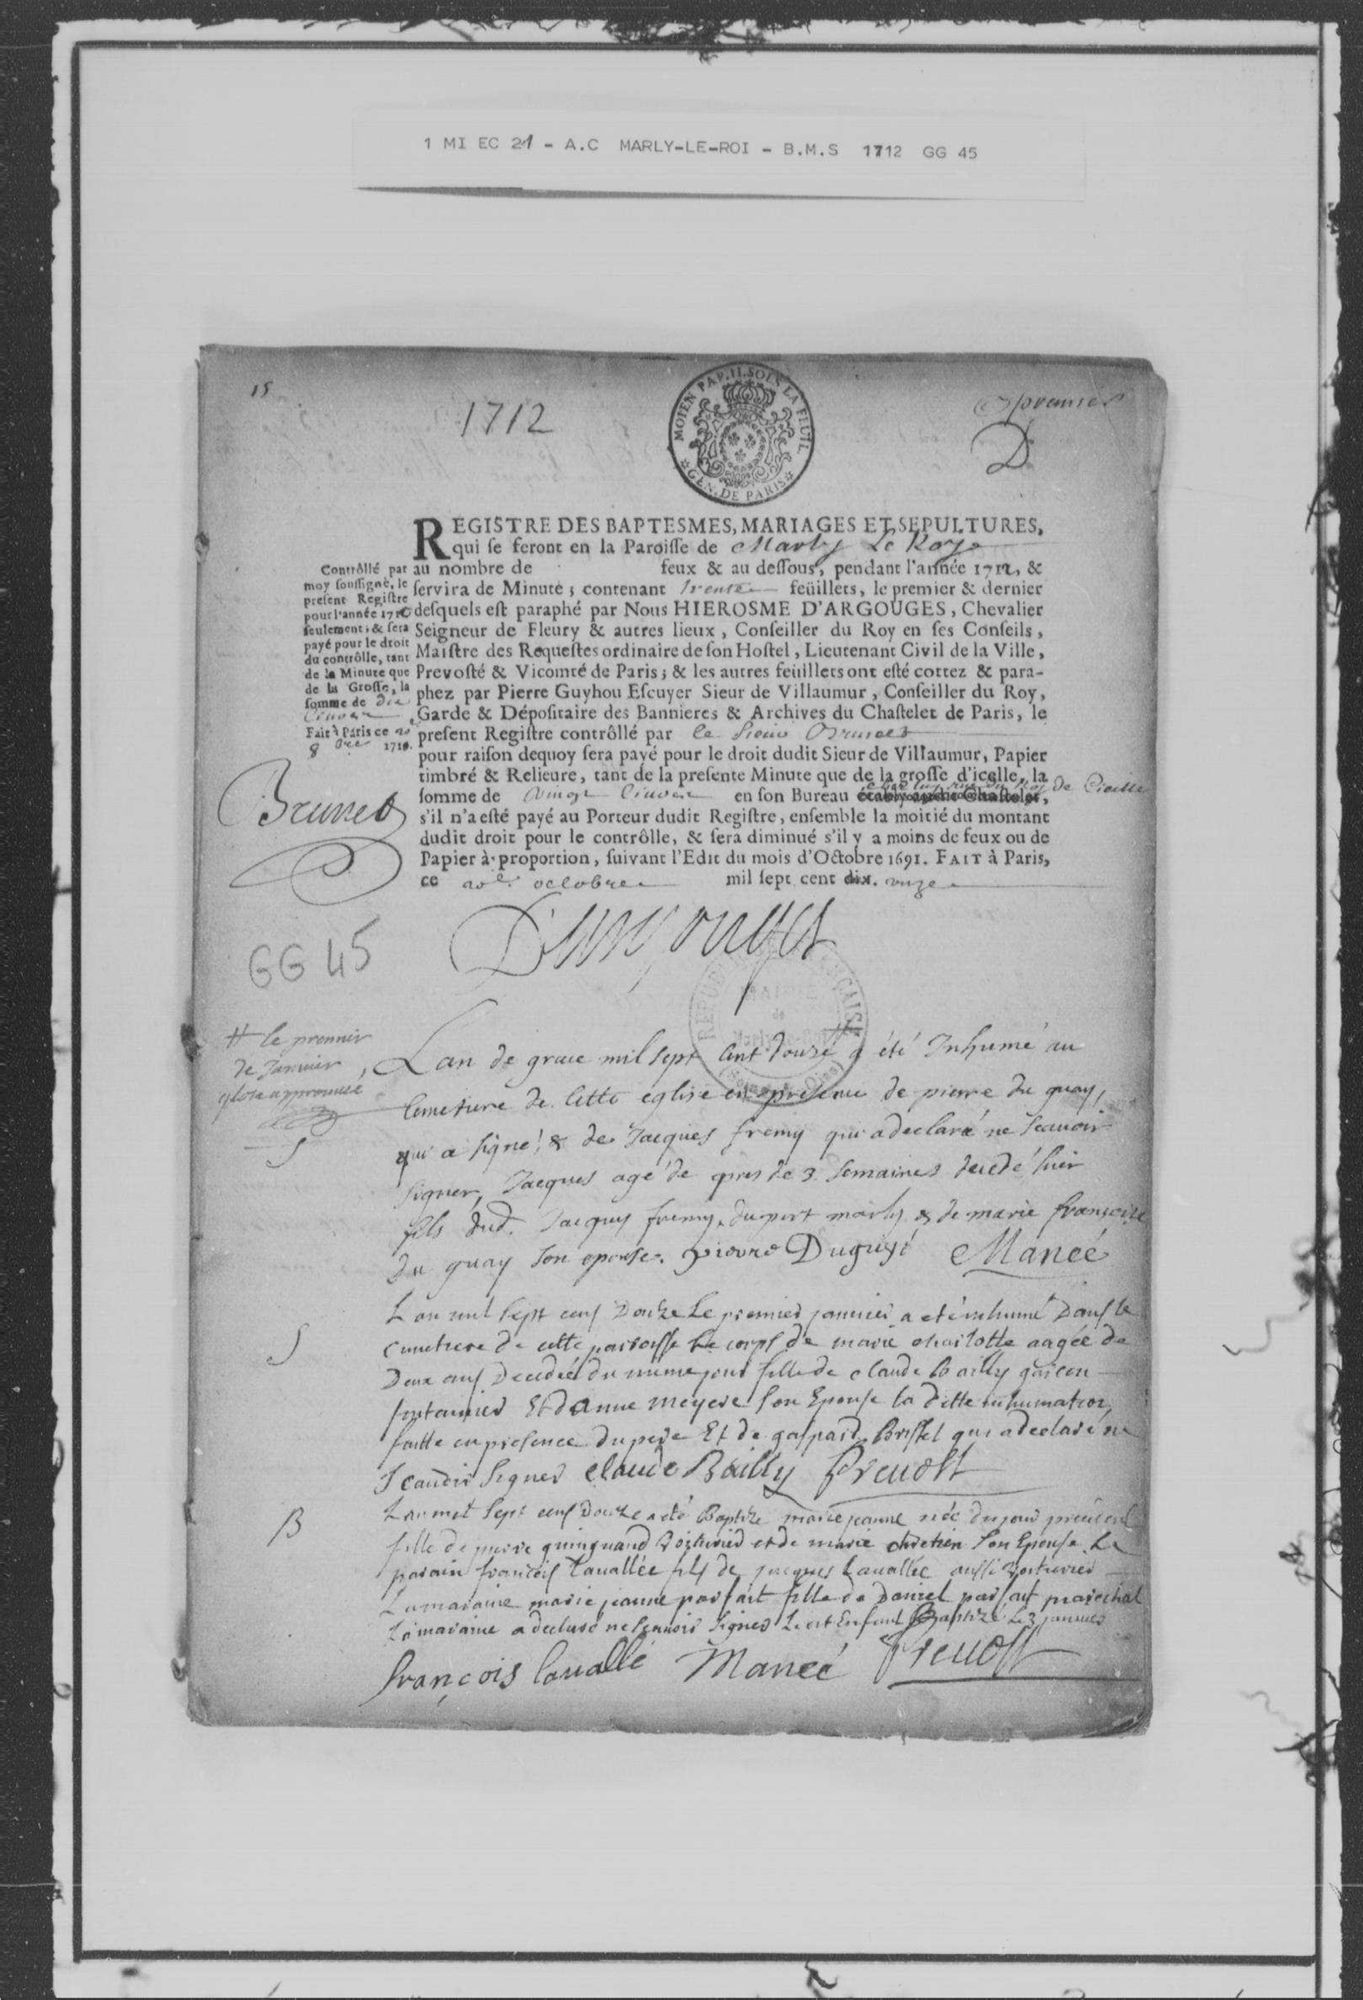 1 MI EC 21 - A.C MARLY-LE-ROI - B.M.S 1712 GG 45
15
1712
MOIEN PAP. II. SOLS LA FEUIL.
GEN. DE PARIS
premier
D
REGISTRE DES BAPTESMES, MARIAGES ET SEPULTURES,
qui se feront en la Paroisse de Marly Le Roy
au nombre de feux & au dessous, pendant l'année 1712, &
servira de Minute ; contenant trente feüillets, le premier & dernier
desquels est paraphé par Nous HIEROSME D'ARGOUGES, Chevalier
Seigneur de Fleury & autres lieux, Conseiller du Roy en ses Conseils,
Maistre des Requestes ordinaire de son Hostel, Lieutenant Civil de la Ville,
Prevosté & Vicomté de Paris ; & les autres feüillets ont esté cottez & para-
phez par Pierre Guyhou Escuyer Sieur de Villaumur, Conseiller du Roy,
Garde & Dépositaire des Bannieres & Archives du Chastelet de Paris, le
present Registre contrôllé par le Sieur Brunet
pour raison dequoy sera payé pour le droit dudit Sieur de Villaumur, Papier
timbré & Relieure, tant de la presente Minute que de la grosse d'icelle, la
somme de en son Bureau
s'il n'a esté payé au Porteur dudit Registre, ensemble la moitié du montant
dudit droit pour le contrôlle, & sera diminué s'il y a moins de feux ou de
Papier à proportion, suivant l'Edit du mois d'Octobre 1691. FAIT à Paris,
ce octobre mil sept cent dix. onze
Contrôllé par
moy soussigné, le
present Registre
pour l'année 171
seulement ; & sera
payé pour le droit
du contrôlle, tant
de la Minute que
de la Grosse, la
somme de
Fait à Paris ce
8 bre 1710.
Brunet
Dargouges
GG 45
# le premier
de Janvier
glose approuvée
S
Lan de grace mil sept cent douze # a été Inhumé au
Cimetiere de Cette eglise en presence de pierre du quay,
qui a signé, & de Jacques fremy qui a declaré ne scauoir
signer, Jacques agé de pres de 3 semaines decedé hier
fils dud. Jacques fremy du port marly & de marie françoise
du quay son epouse. pierre Duguyé Maneé
S
Lan mil sept cens Douze Le premier januier a eté inhumé Dans le
cimetiere de cette parroisse Le corps de marie charlotte aagée de
Deux ans Decedée du meme jour fille de claude Bailly garcon
fontainier Et danne meyere son Epouse la ditte inhumation
faitte en presence du pere Et de gaspard Bristel qui a declaré ne
scauoir signer claude Bailly Preuost
B
Lan mil sept cens Douze a eté Baptizé marie jeanne née du jour precedent
fille de pierre quinquand Voiturier et de marie chretien son Epouse Le
parain francois Lauallée fils de jacques Lauallée aussi Voiturier
La maraine marie jeanne parfait fille de Daniel parfait marechal
La maraine a declaré ne scauoir signer Ledit Enfant Baptizé Le 3 januier
François Lauallé Maneé Preuost